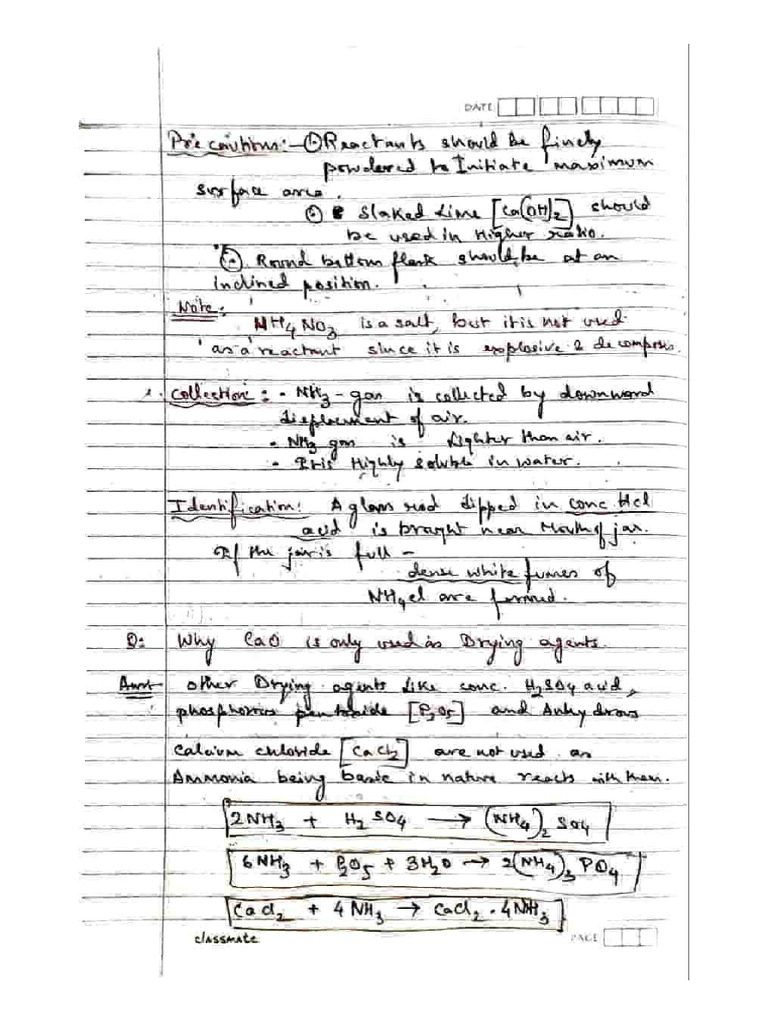 DATE
Precautions:- ① Reactants should be finely
powdered to Initiate maximum
surface area.
① Slaked Lime [Ca(OH)2] should
be used in Higher ratio.
① Round bottom flask should be at an
inclined position.
Note:
NH4NO3 is a salt, but it is not used
as a reactant since it is explosive & decomposes.
Collection: • NH3-gas is collected by downward
displacement of air.
• NH3 gas is Lighter than air.
• It is Highly soluble in water.
Identification: A glass rod dipped in conc Hcl
acid is brought near Mouth of jar.
If the jar is full -
dense white fumes of
NH4cl are formed.
Q: Why CaO is only used as Drying agents.
Ans: other Drying agents Like conc. H2SO4 acid,
phosphorus pentoxide [P2O5] and Anhydrous
Calcium chloride [CaCl2] are not used as
Ammonia being basic in nature reacts with them.
2NH3 + H2SO4 → (NH4)2SO4
6NH3 + P2O5 + 3H2O → 2(NH4)3PO4
CaCl2 + 4NH3 → CaCl2·4NH3
classmate
PAGE